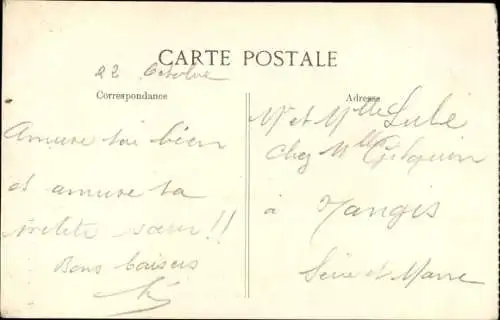 CARTE POSTALE
22 Octobre
Correspondance
Adresse
Amuse toi bien
et amuse ta
petite sœur !!
Bons baisers
Mr et Mlle
chez Mlle
à Nangis
Seine et Marne